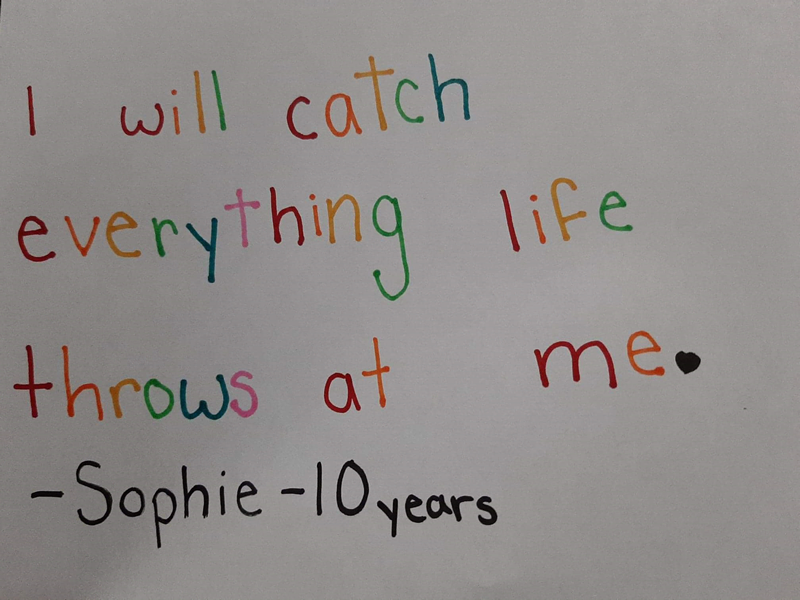 I will catch
everything life
throws at me.
-Sophie -10 years